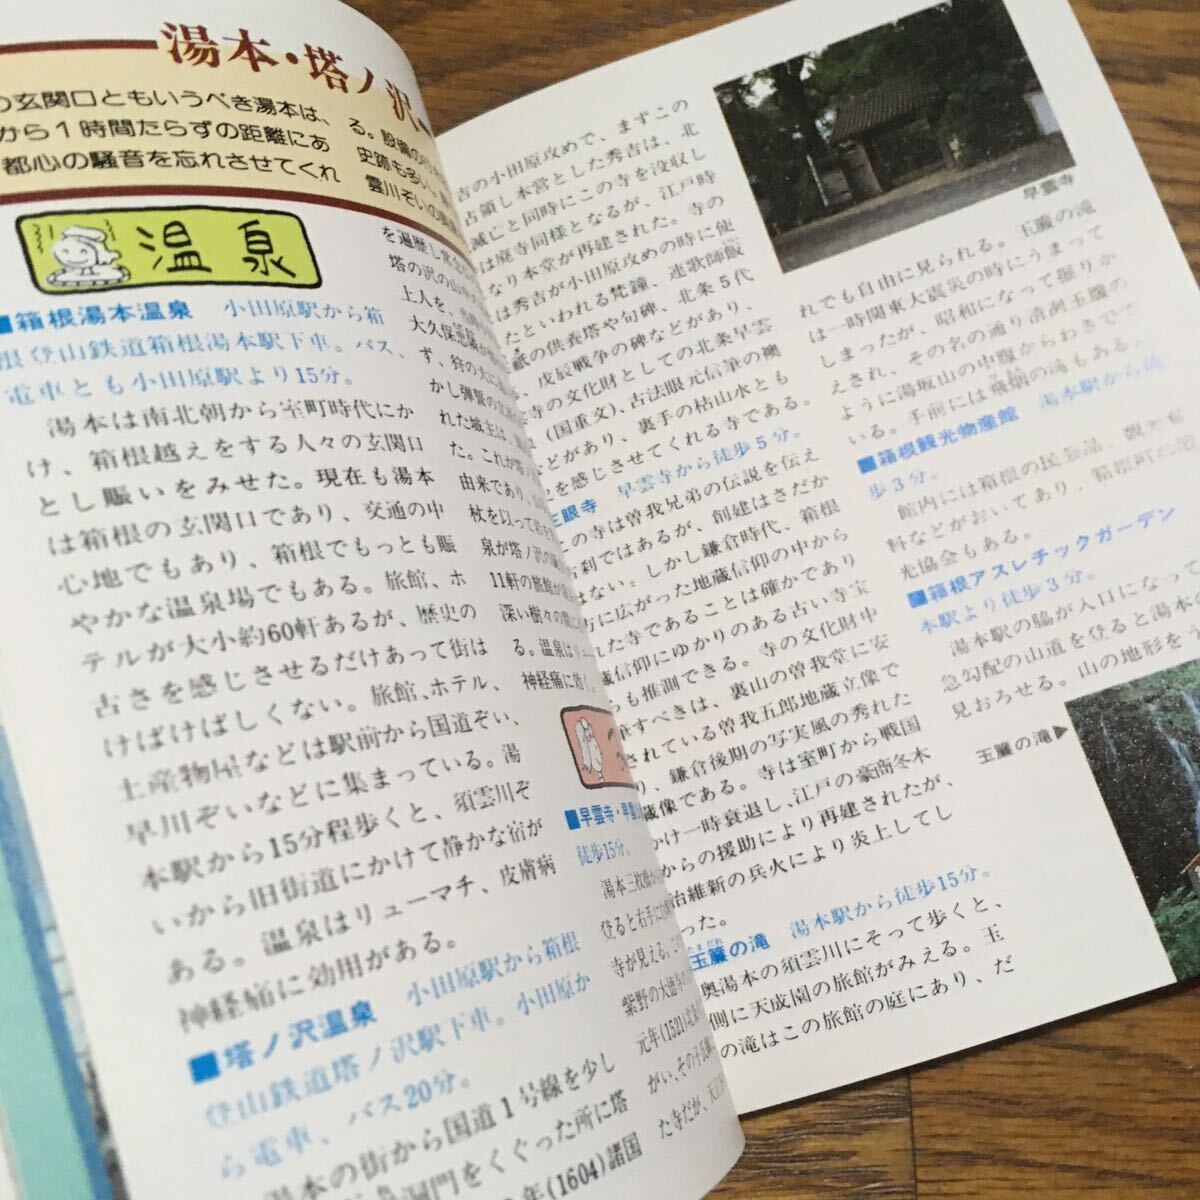 湯本・塔ノ沢
の玄関口ともいうべき湯本は、
から1時間たらずの距離にあ
都心の騒音を忘れさせてくれ
る。設備の
史跡も多い。
雲川ぞいの
温泉
■箱根湯本温泉　小田原駅から箱
根登山鉄道箱根湯本駅下車。バス、
電車とも小田原駅より15分。
湯本は南北朝から室町時代にか
け、箱根越えをする人々の玄関口
とし賑いをみせた。現在も湯本
は箱根の玄関口であり、交通の中
心地でもあり、箱根でもっとも賑
やかな温泉場でもある。旅館、ホ
テルが大小約60軒あるが、歴史の
古さを感じさせるだけあって街は
けばけばしくない。旅館、ホテル、
土産物屋などは駅前から国道ぞい、
早川ぞいなどに集まっている。湯
本駅から15分程歩くと、須雲川ぞ
いから旧街道にかけて静かな宿が
ある。温泉はリューマチ、皮膚病
神経痛に効用がある。
■塔ノ沢温泉　小田原駅から箱根
登山鉄道塔ノ沢駅下車。小田原か
ら電車、バス20分。
湯本の街から国道1号線を少し
洞門をくぐった所に塔
年(1604)諸国
を遍歴し
塔の沢の山
上人を、
大久保忠隣が
ず、狩の犬に
かし弾誓の
れた城主は、
た。これが塔ノ
由来であり、
杖を以って
泉が塔ノ沢の
11軒の旅館が
深い樹々の間に
る。温泉はリュ
神経痛に効く。
■早雲寺・早雲
徒歩15分。
湯本三枚橋か
登ると右手に
寺が見える。こ
紫野の大徳寺の
元年(1521)北
がい、その子氏綱
た寺だが、天正
吉の小田原攻めで、まずこの
占領し本営とした秀吉は、北
滅亡と同時にこの寺を没収し
は廃寺同様となるが、江戸時
なり本堂が再建された。寺の
は秀吉が小田原攻めの時に使
たといわれる梵鐘、連歌師飯
祇の供養塔や句碑、北条5代
、戊辰戦争の碑などがあり、
寺の文化財としての北条早雲
(国重文)、古法眼元信筆の襖
などがあり、裏手の枯山水とも
を感じさせてくれる寺である。
正眼寺　早雲寺から徒歩5分。
この寺は曽我兄弟の伝説を伝え
古刹ではあるが、創建はさだか
はない。しかし鎌倉時代、箱根
方に広がった地蔵信仰の中から
れた寺であることは確かであり
蔵信仰にゆかりのある古い寺宝
らも推測できる。寺の文化財中
筆すべきは、裏山の曽我堂に安
されている曽我五郎地蔵立像で
り、鎌倉後期の写実風の秀れた
蔵像である。寺は室町から戦国
かけ一時衰退し、江戸の豪商冬木
からの援助により再建されたが、
治維新の兵火により炎上してし
った。
玉簾の滝　湯本駅から徒歩15分。
奥湯本の須雲川にそって歩くと、
側に天成園の旅館がみえる。玉
の滝はこの旅館の庭にあり、だ
早雲寺
れでも自由に見られる。玉簾の滝
は一時関東大震災の時にうまって
しまったが、昭和になって掘りか
えされ、その名の通り清冽玉簾の
ように湯坂山の中腹からわきでて
いる。手前には飛烟の滝もある。
■箱根観光物産館　湯本駅から徒
歩3分。
館内には箱根の民芸品、観光資
料などがおいてあり、箱根町の
光協会もある。
■箱根アスレチックガーデン
本駅より徒歩3分。
湯本駅の脇が入口になって
急勾配の山道を登ると湯本の
見おろせる。山の地形を
玉簾の滝▶